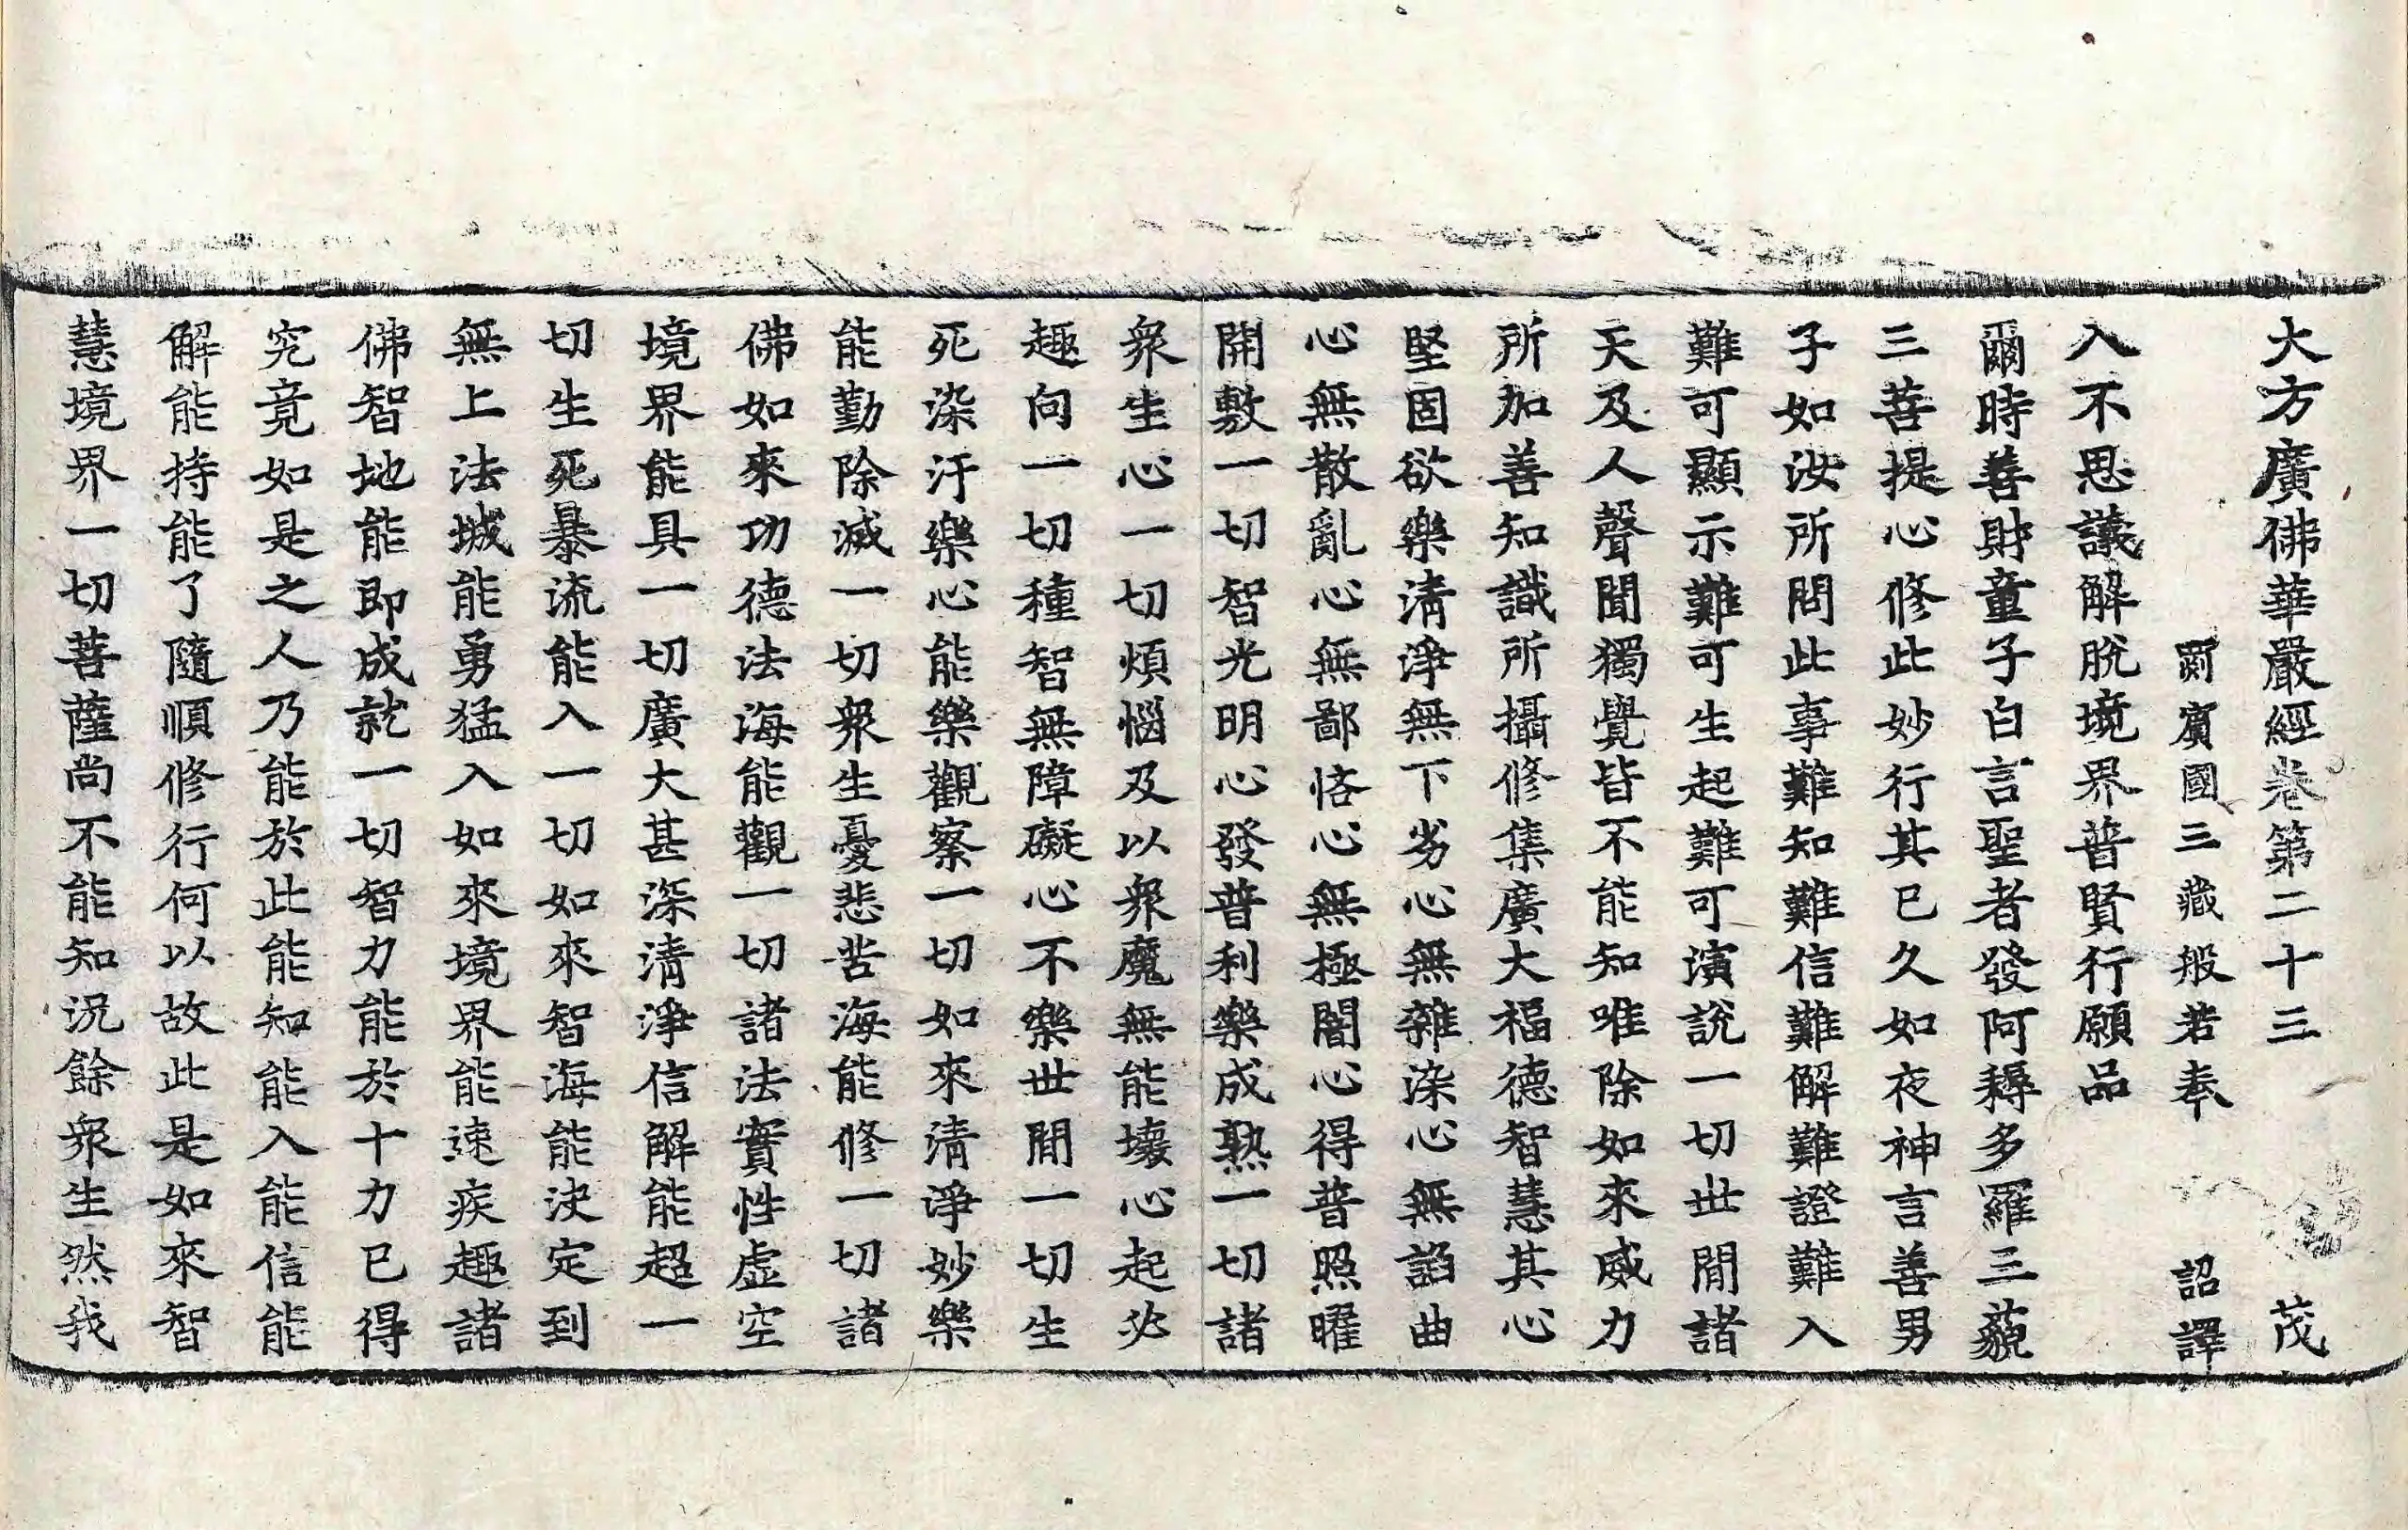 大方廣佛華嚴經卷第二十三 茂
罽賓國三藏般若奉 詔譯
入不思議解脫境界普賢行願品
爾時善財童子白言聖者發阿耨多羅三藐
三菩提心修此妙行其已久如夜神言善男
子如汝所問此事難知難信難解難證難入
難可顯示難可生起難可演說一切世閒諸
天及人聲聞獨覺皆不能知唯除如來威力
所加善知識所攝修集廣大福德智慧其心
堅固欲樂淸淨無下劣心無雜染心無諂曲
心無散亂心無鄙悋心無極闇心得普照曜
開敷一切智光明心發普利樂成熟一切諸
衆生心一切煩惱及以衆魔無能壞心起必
趣向一切種智無障礙心不樂世閒一切生
死染汙樂心能樂觀察一切如來淸淨妙樂
能勤除滅一切衆生憂悲苦海能修一切諸
佛如來功德法海能觀一切諸法實性虛空
境界能具一切廣大甚深淸淨信解能超一
切生死暴流能入一切如來智海能決定到
無上法城能勇猛入如來境界能速疾趣諸
佛智地能卽成就一切智力能於十力已得
究竟如是之人乃能於此能知能入能信能
解能持能了隨順修行何以故此是如來智
慧境界一切菩薩尚不能知況餘衆生然我